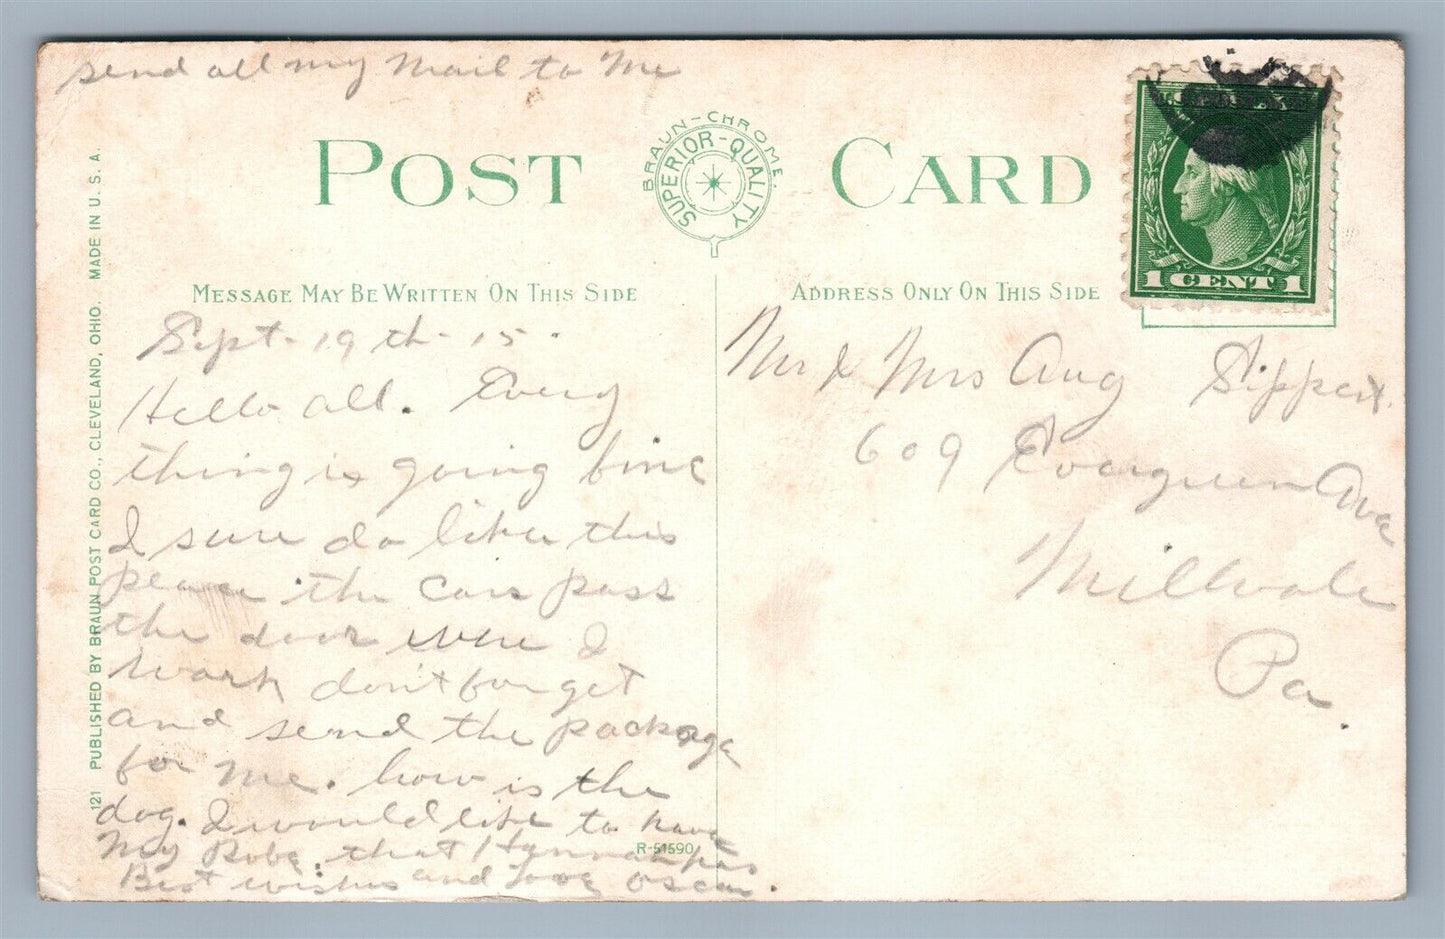 send all my mail to Me
POST CARD
BRAUN-CHROME.
SUPERIOR-QUALITY
MESSAGE MAY BE WRITTEN ON THIS SIDE
Sept. 19th - 15.
Hello all. Every
thing is going fine
I sure do like this
place the cars pass
the door were I
work don't forget
and send the package
for me. how is the
dog. I would like to have
My Robe. that Hannah
Best wishes and love Oscar.
R-51590
ADDRESS ONLY ON THIS SIDE
Mr & Mrs Aug Sippert.
609 Evergreen Ave
Millvale
Pa.
1 CENT 1
121 PUBLISHED BY BRAUN POST CARD CO., CLEVELAND, OHIO. MADE IN U. S. A.